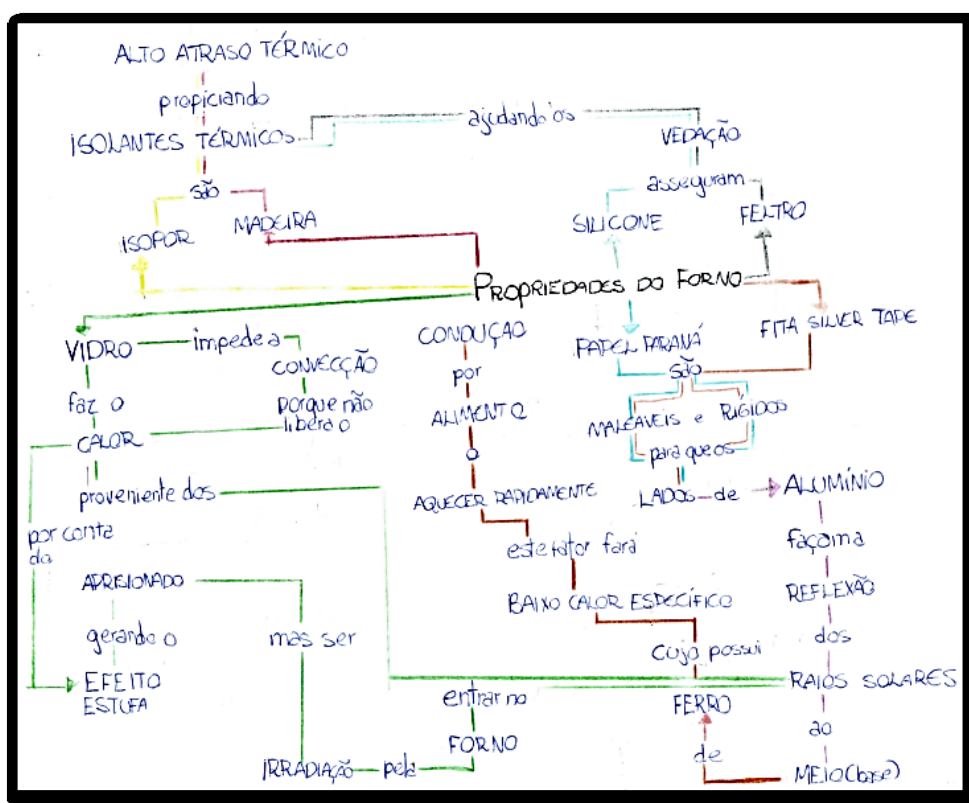 ALTO ATRASO TÉRMICO
propiciando
ISOLANTES TÉRMICOS
ajudando os
VEDAÇÃO
são
asseguram
ISOPOR
MADEIRA
SILICONE
FELTRO
PROPRIEDADES DO FORNO
VIDRO
impede a
CONVECÇÃO
CONDUÇÃO
PAPEL PARANÁ
FITA SILVER TAPE
são
faz o
porque não
libera o
por
ALIMENTO
MALEÁVEIS e RÍGIDOS
CALOR
o
para que os
proveniente dos
AQUECER RAPIDAMENTE
LADOS de ALUMÍNIO
por conta
da
este fator fará
façama
APRISIONADO
BAIXO CALOR ESPECÍFICO
REFLEXÃO
gerando o
mas ser
cujo possui
dos
EFEITO
ESTUFA
entrar no
FERRO
RAIOS SOLARES
FORNO
de
ao
IRRADIAÇÃO pela
MEIO (base)